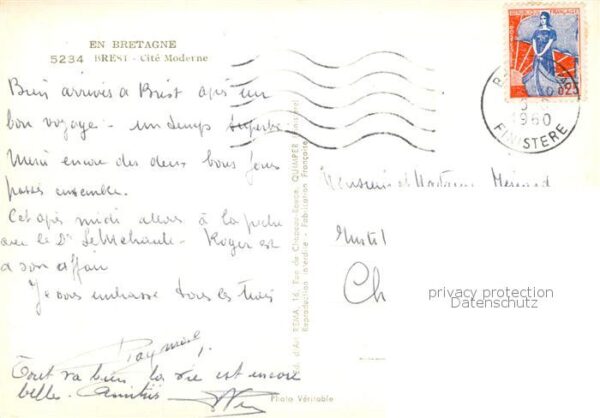 EN BRETAGNE
5234 BREST - Cité Moderne
Bien arrivés a Brest après un
bon voyage - un temps superbe
Merci encore des deux bons jours
passés ensemble.
Cet après midi allons à la peche
avec le Dr Roger est
a son affaire
Je vous embrasse tous les trois
Raymond.
Tout va bien la vie est encore
belle. Amitiés
Ed. d'Art REMA, 16, Rue de Chapeau-Rouge, QUIMPER (Finistère)
Reproduction interdite - Fabrication Française
Photo Véritable
FRANÇAISE
0,25
1960
FINISTERE
Monsieur et Madame
Ch
privacy protection
Datenschutz